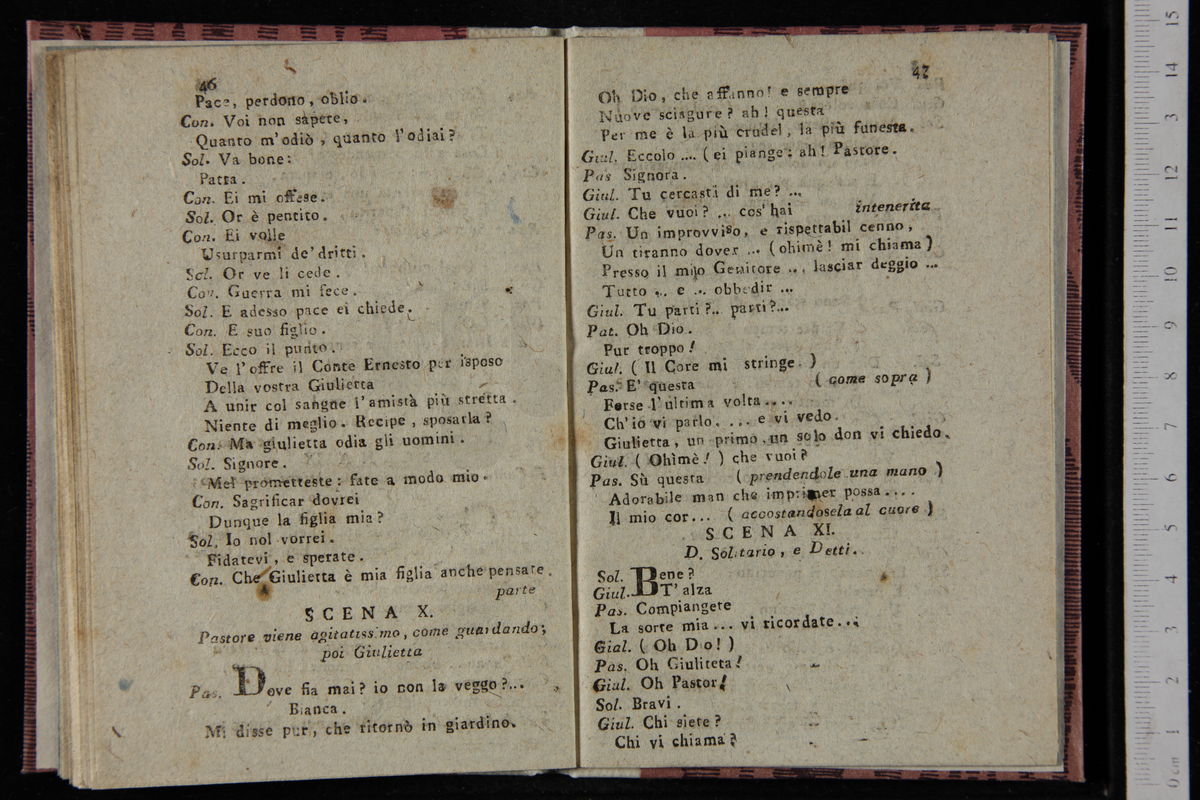 46
Pace, perdono, oblio.
Con. Voi non sapete,
Quanto m'odiò, quanto l'odiai?
Sol. Va bone:
Patta.
Con. Ei mi offese.
Sol. Or è pentito.
Con. Ei volle
Usurparmi de' dritti.
Sol. Or ve li cede.
Con. Guerra mi fece.
Sol. E adesso pace ei chiede.
Con. E suo figlio.
Sol. Ecco il punto.
Ve l'offre il Conte Ernesto per isposo
Della vostra Giulietta
A unir col sangue l'amistà più stretta.
Niente di meglio. Recipe, sposarla?
Con. Ma giulietta odia gli uomini.
Sol. Signore.
Mel prometteste: fate a modo mio.
Con. Sagrificar dovrei
Dunque la figlia mia?
Sol. Io nol vorrei.
Fidatevi, e sperate.
Con. Che Giulietta è mia figlia anche pensate.
parte
SCENA X.
Pastore viene agitatissimo, come guardando;
poi Giulietta
Pas. Dove fia mai? io non la veggo?...
Bianca.
Mi disse pur, che ritornò in giardino.
47
Oh Dio, che affanno! e sempre
Nuove sciagure? ah! questa
Per me è la più crudel, la più funesta.
Giul. Eccolo .... (ei piange: ah! Pastore.
Pas Signora.
Giul. Tu cercasti di me? ...
Giul. Che vuoi? ... cos' hai intenerita
Pas. Un improvviso, e rispettabil cenno,
Un tiranno dover ... (ohimè! mi chiama)
Presso il mio Genitore ... lasciar deggio ...
Tutto ... e ... obbedir ...
Giul. Tu parti?.. parti?...
Pat. Oh Dio.
Pur troppo!
Giul. (Il Core mi stringe.)
Pas. E' questa (come sopra)
Forse l'ultima volta....
Ch'io vi parlo. ... e vi vedo.
Giulietta, un primo, un solo don vi chiedo.
Giul. (Ohimè!) che vuoi?
Pas. Sù questa (prendendole una mano)
Adorabile man che imprimer possa....
Il mio cor... (accostandosela al cuore)
SCENA XI.
D. Solitario, e Detti.
Sol. Bene?
Giul. T' alza
Pas. Compiangete
La sorte mia... vi ricordate...
Gial. (Oh Dio!)
Pas. Oh Giuliteta!
Giul. Oh Pastor!
Sol. Bravi.
Giul. Chi siete?
Chi vi chiama?
15
14
13
12
11
10
9
8
7
6
5
4
3
2
1
0 cm